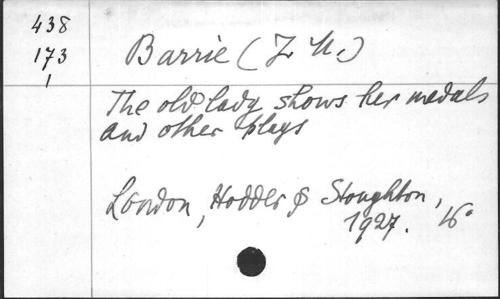 438
173
1
Barrie (J. M.)
The old lady shows her medals
and other plays
London, Hodder & Stoughton,
1927. 16°